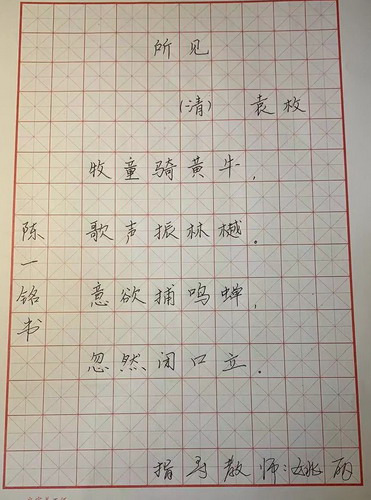 所见
(清) 袁枚
牧童骑黄牛,
歌声振林樾.
意欲捕鸣蝉,
忽然闭口立.
陈一铭书
指导教师:姚丽